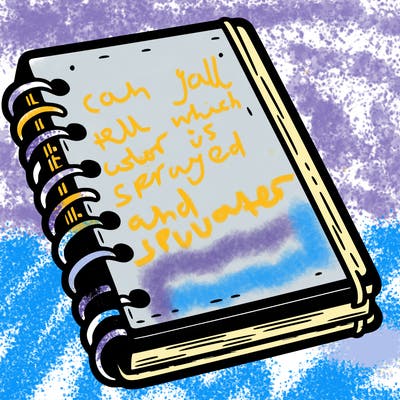 can yall
tell which
color is
sprayed
and